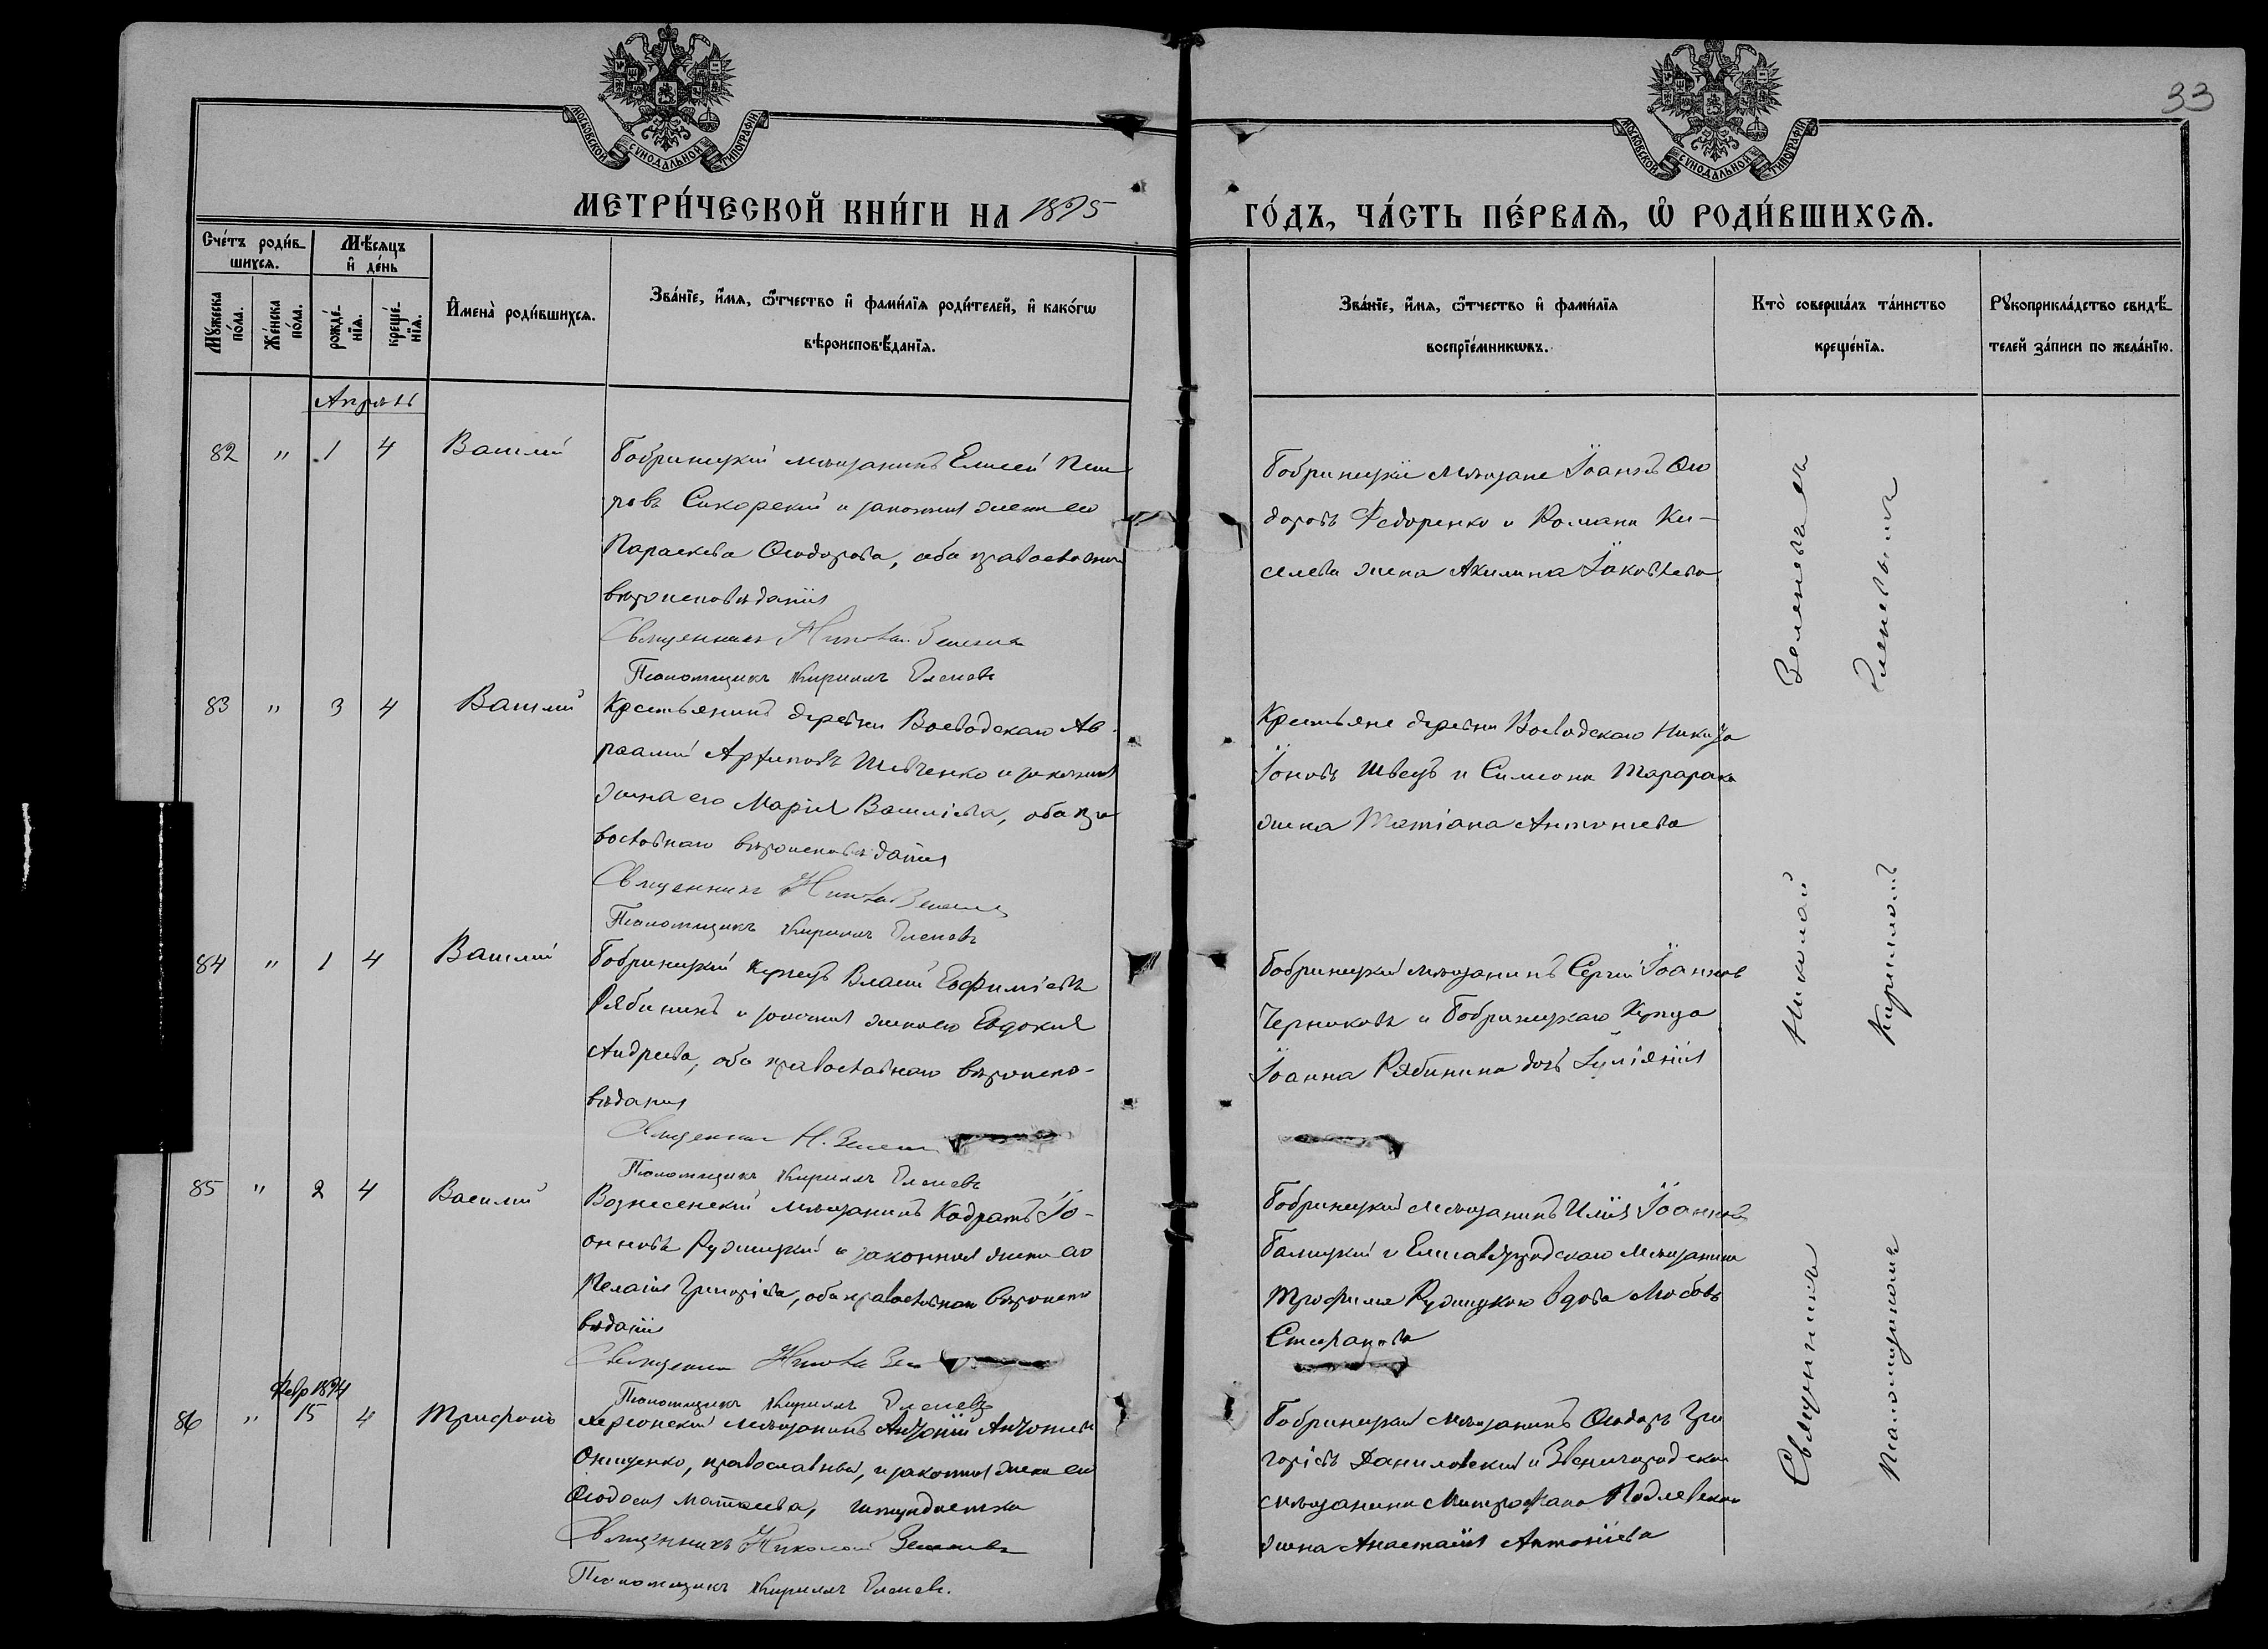 33
МОСКОВСКОЙ СѴНОДАЛЬНОЙ ТИПОГРАФІИ
МОСКОВСКОЙ СѴНОДАЛЬНОЙ ТИПОГРАФІИ
МЕТРИ́ЧЕСКОЙ КНИ́ГИ НА 1895 ГО́ДЪ, ЧА́СТЬ ПЕ́РВАѦ, Ѡ҆ РОДИ́ВШИХСѦ.
Сче́тъ роди́в-
шихсѧ.
Мѣ́сѧцъ
и҆ де́нь
Мꙋ́жеска
по́ла.
Же́нска
по́ла.
рожде́-
нїѧ.
креще́-
нїѧ.
И҆мена̀ роди́вшихсѧ.
Зва́нїе, и҆́мѧ, ѻ҆́тчество и҆ фами́лїѧ роди́телей, и҆ како́гѡ
вѣроисповѣ́данїѧ.
Зва́нїе, и҆́мѧ, ѻ҆́тчество и҆ фами́лїѧ
воспрїе́мникѡвъ.
Кто̀ соверша́лъ та́инство
креще́нїѧ.
Рꙋкоприкла́дство свидѣ́-
телей за́писи по жела́нїю.
Апрѣль
82 " 1 4 Василій
Бобринецкій мѣщанинъ Елисей Пет
ровъ Сикорскій и законная жена его
Параскева Ѳеодорова, оба православнаго
вѣроисповѣданія
Священникъ Николай Зеленевъ
Псаломщикъ Кириллъ Еленевъ
Бобринецкіе мѣщане Іоаннъ Ѳео
доровъ Федоренко и Романа Ки-
селева жена Акилина Іаковлева
83 " 3 4 Василій
Крестьянинъ деревни Воеводскаго Ав-
раамій Архиповъ Шевченко и законная
жена его Марія Василіева, оба пра
вославнаго вѣроисповѣданія
Священникъ Николай Зеленевъ
Псаломщикъ Кириллъ Еленевъ
Крестьяне деревни Воеводскаго Никита
Іоновъ Швецъ и Симеона Тарарака
жена Татіана Антоніева
84 " 1 4 Василій
Бобринецкій купецъ Власій Евфиміевъ
Рябининъ и законная жена его Евдокія
Андреева, оба православнаго вѣроиспо-
вѣданія
Священникъ Н. Зеленевъ
Псаломщикъ Кириллъ Еленевъ
Бобринецкій мѣщанинъ Сергій Іоанновъ
Черниковъ и Бобринецкаго купца
Іоанна Рябинина дочь Іуліянія
85 " 2 4 Василій
Вознесенскій мѣщанинъ Кодратъ Іо-
анновъ Рудницкій и законная жена его
Пелагія Григоріева, оба православнаго вѣроиспо
вѣданія
Священникъ Николай
Псаломщикъ Кириллъ Еленевъ
Бобринецкій мѣщанинъ Илія Іоанновъ
Балицкій и Елисаветградскаго мѣщанина
Трофима Рудницкаго вдова Любовь
Стефанова
Февр 1894
86 " 15 4 Трифонъ
Херсонскій мѣщанинъ Антоній Антоніевъ
Онищенко, православный, и законная жена его
Ѳеодосія Матѳеева,
Священникъ Николай Зеленевъ
Псаломщикъ Кириллъ Еленевъ.
Бобринецкій мѣщанинъ Ѳеодоръ Гри
горіевъ Даниловскій и Звенигородскаго
мѣщанина Митрофана Подлевскаго
жена Анастасія Антоніева
Священникъ Николай Зеленевъ
Псаломщикъ Кириллъ Еленевъ